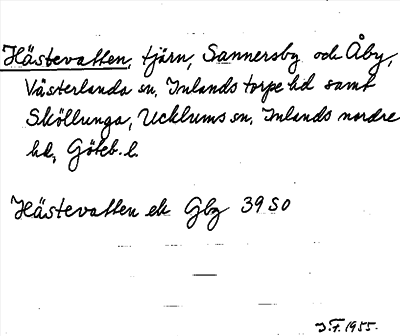 Hästevatten, tjärn, Sannersby och Åby,
Västerlanda sn, Inlands torpe hd samt
Sköllunga, Ucklums sn, Inlands nordre
hd, Göteb. l.
Hästevatten ek Gbg 39 SO
J.F. 1955.